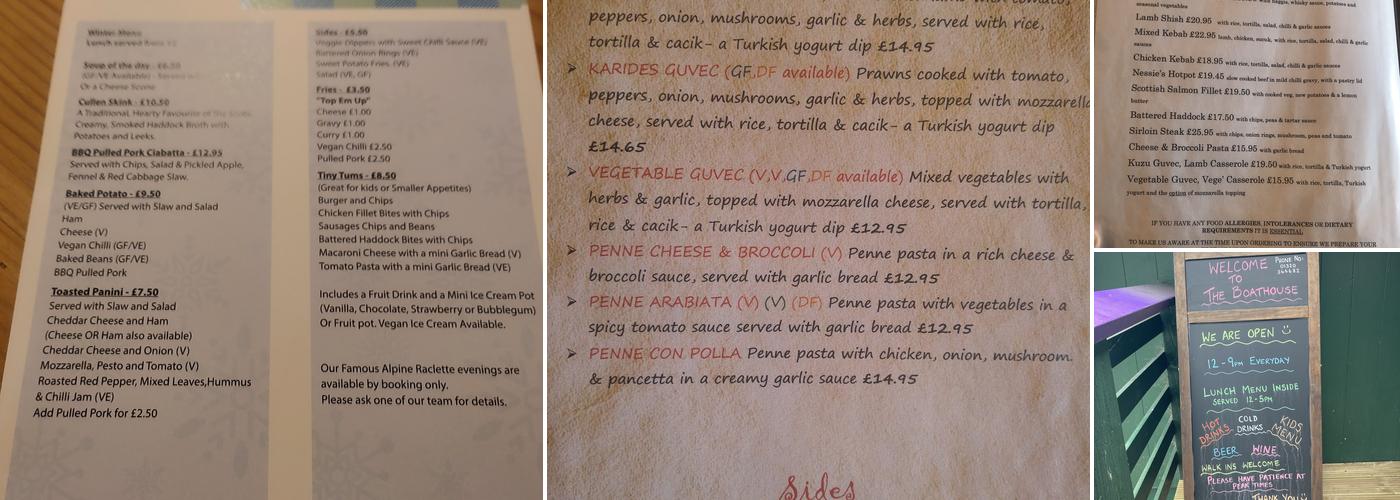 Winter Menu
Lunch served from 12
Soup of the day - £6.50
(GF/VE Available) - Served
Or a Cheese Scone
Cullen Skink - £10.50
A Traditional, Hearty Favourite of the Scots.
Creamy, Smoked Haddock Broth with
Potatoes and Leeks.
BBQ Pulled Pork Ciabatta - £12.95
Served with Chips, Salad & Pickled Apple,
Fennel & Red Cabbage Slaw.
Baked Potato - £9.50
(VE/GF) Served with Slaw and Salad
Ham
Cheese (V)
Vegan Chilli (GF/VE)
Baked Beans (GF/VE)
BBQ Pulled Pork
Toasted Panini - £7.50
Served with Slaw and Salad
Cheddar Cheese and Ham
(Cheese OR Ham also available)
Cheddar Cheese and Onion (V)
Mozzarella, Pesto and Tomato (V)
Roasted Red Pepper, Mixed Leaves,Hummus
& Chilli Jam (VE)
Add Pulled Pork for £2.50
Sides - £5.50
Veggie Dippers with Sweet Chilli Sauce (VE)
Battered Onion Rings (VE)
Sweet Potato Fries (VE)
Salad (VE, GF)
Fries - £3.50
"Top Em Up"
Cheese £1.00
Gravy £1.00
Curry £1.00
Vegan Chilli £2.50
Pulled Pork £2.50
Tiny Tums - £8.50
(Great for kids or Smaller Appetites)
Burger and Chips
Chicken Fillet Bites with Chips
Sausages Chips and Beans
Battered Haddock Bites with Chips
Macaroni Cheese with a mini Garlic Bread (V)
Tomato Pasta with a mini Garlic Bread (VE)
Includes a Fruit Drink and a Mini Ice Cream Pot
(Vanilla, Chocolate, Strawberry or Bubblegum)
Or Fruit pot. Vegan Ice Cream Available.
Our Famous Alpine Raclette evenings are
available by booking only.
Please ask one of our team for details.
peppers, onion, mushrooms, garlic & herbs, served with rice,
tortilla & cacik- a Turkish yogurt dip £14.95
➢ KARIDES GUVEC (GF,DF available) Prawns cooked with tomato,
peppers, onion, mushrooms, garlic & herbs, topped with mozzarella
cheese, served with rice, tortilla & cacik- a Turkish yogurt dip
£14.65
➢ VEGETABLE GUVEC (V,V,GF,DF available) Mixed vegetables with
herbs & garlic, topped with mozzarella cheese, served with tortilla,
rice & cacik- a Turkish yogurt dip £12.95
➢ PENNE CHEESE & BROCCOLI (V) Penne pasta in a rich cheese &
broccoli sauce, served with garlic bread £12.95
➢ PENNE ARABIATA (V) (V) (DF) Penne pasta with vegetables in a
spicy tomato sauce served with garlic bread £12.95
➢ PENNE CON POLLA Penne pasta with chicken, onion, mushroom.
& pancetta in a creamy garlic sauce £14.95
Sides
seasonal vegetables
Lamb Shish £20.95 with rice, tortilla, salad, chilli & garlic sauces
Mixed Kebab £22.95 lamb, chicken, sucuk, with rice, tortilla, salad, chilli & garlic
sauces
Chicken Kebab £18.95 with rice, tortilla, salad, chilli & garlic sauces
Nessie's Hotpot £19.45 slow cooked beef in mild chilli gravy, with a pastry lid
Scottish Salmon Fillet £19.50 with cooked veg, new potatoes & a lemon
butter
Battered Haddock £17.50 with chips, peas & tartar sauce
Sirloin Steak £25.95 with chips, onion rings, mushroom, peas and tomato
Cheese & Broccoli Pasta £15.95 with garlic bread
Kuzu Guvec, Lamb Casserole £19.50 with rice, tortilla & Turkish yogurt
Vegetable Guvec, Vege' Casserole £15.95 with rice, tortilla, Turkish
yogurt and the option of mozzarella topping
IF YOU HAVE ANY FOOD ALLERGIES, INTOLERANCES OR DIETARY
REQUIREMENTS IT IS ESSENTIAL
TO MAKE US AWARE AT THE TIME UPON ORDERING TO ENSURE WE PREPARE YOUR
WELCOME
TO
THE BOATHOUSE
PHONE NO:
WE ARE OPEN
12 - 9PM EVERYDAY
LUNCH MENU INSIDE
SERVED 12-5PM
HOT DRINKS
COLD DRINKS
KIDS MENU
BEER WINE
WALK INS WELCOME
PLEASE HAVE PATIENCE AT
PEAK TIMES
THANK YOU